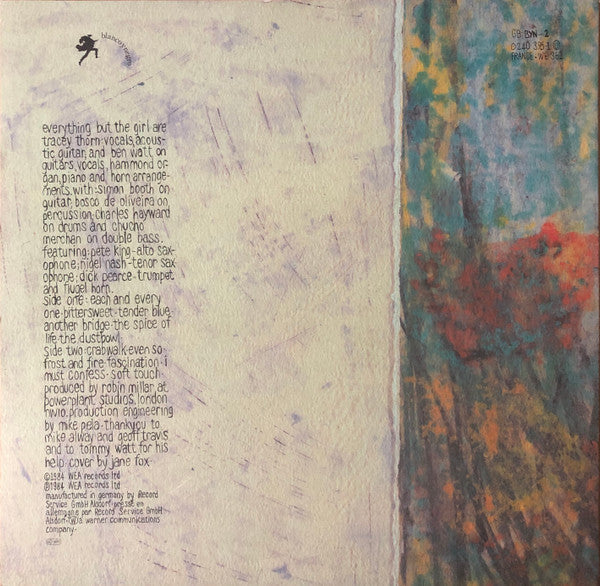 blanco y negro
GB BYN-2
D240 395-1
FRANCE: WE 362
everything but the girl are
tracey thorn·vocals, acous-
tic guitar, and ben watt on
guitars, vocals, hammond or-
gan, piano and horn arrange-
ments. with·simon booth on
guitar, bosco de oliveira on
percussion·charles hayward
on drums and chucho
merchan on double bass.
featuring·pete king-alto sax-
ophone·nigel nash-tenor sax
ophone·dick pearce-trumpet
and flugel horn.
side one·each and every
one·bittersweet·tender blue·
another bridge·the spice of
life·the dustbowl·
side two·crabwalk·even so·
frost and fire·fascination·i
must confess·soft touch·
produced by robin millar at
powerplant studios, london
nw10. production engineering
by mike pela·thankyou to
mike alway and geoff travis
and to tommy watt for his
help·cover by jane fox·
©1984 WEA records ltd
℗1984 WEA records ltd
manufactured in germany by Record
Service GmbH Alsdorf·presse en
allemagne par Record Service GmbH
Alsdorf·a warner communications
company·